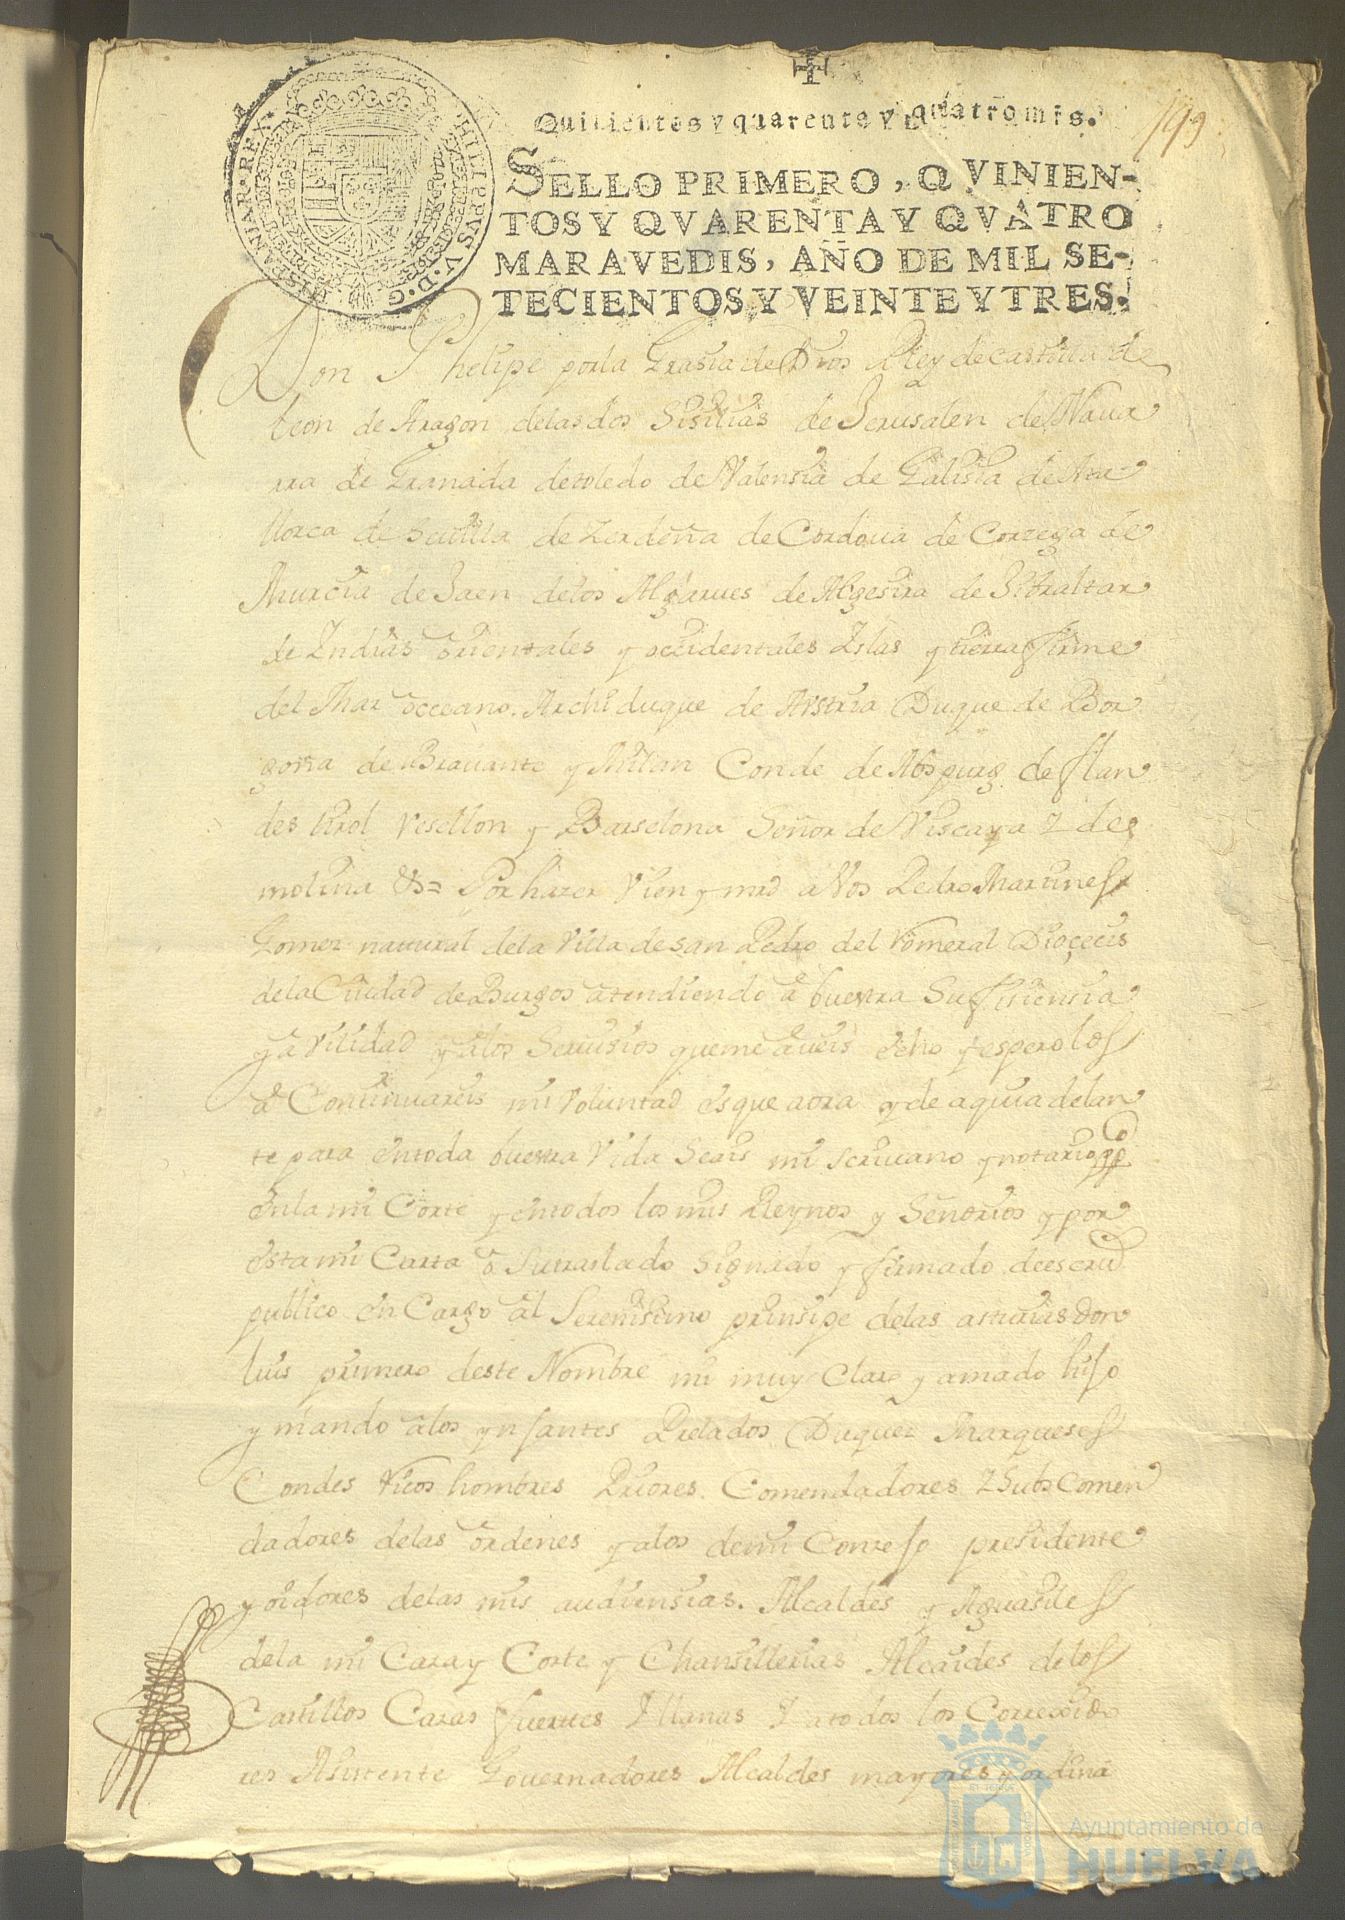 199
Quinientos y quarenta y quatro mrs.
SELLO PRIMERO, QVINIEN-
TOS Y QVARENTA Y QVATRO
MARAVEDIS, AÑO DE MIL SE-
TECIENTOS, Y VEINTE Y TRES.
PHILIPPUS. V. D. G. HISPANIAR. REX
Don Phelipe por la Grasia de Dios Rey de castilla de
leon de Aragon delas dos Sisilias de Jerusalen de Naua
rra de Granada de toledo de Valensia de Galisia de Ma
llorca de Seuilla de Zerdeña de Cordoua de Corzega de
Murcia de Jaen delos Algarues de Algesira de Gibraltar
de Indias orientales y occidentales Islas y tierra firme
del Mar occeano. Archiduque de Avstria Duque de Bor
goña de Brauante y Milan Conde de Abspurg de flan
des tirol Rosellon y Barselona Señor de Viscaya y de
molina &a = Por hazer Vien y mrd a Vos Pedro Martines
Gomez natural dela Villa de san Pedro del Romeral Diocecis
dela Ciudad de Burgos atendiendo a buestra Sufisiensia
y a vilidad y alos Seruisios que me aueis echo y espero los
Continuareis mi Voluntad es que aora y de aqui adelan
te para en toda buestra Vida Seais mi scriuano y notario ppco
en la mi Corte y en todos los mis Reynos y Señorios y por
esta mi Carta o Su traslado Signado y firmado de escriu
publico en Cargo al Serenisimo prinsipe delas asturias Don
luis primero deste Nombre mi muy Claro y amado hijo
y mando alos ynfantes Prelados Duques Marqueses
Condes ricos hombres Priores Comendadores y Subs Comen
dadores delas ordenes y alos de mi Consejo presidente
y oidores delas mis audiensias. Alcaldes y Alguasiles
dela mi Casa y Corte y Chansillerias Alcaides delos
Castillos Casas fuertes y llanas y a todos los Corregido
res Asistente Gouernadores Alcaldes mayores y ordina
Ayuntamiento de
HUELVA